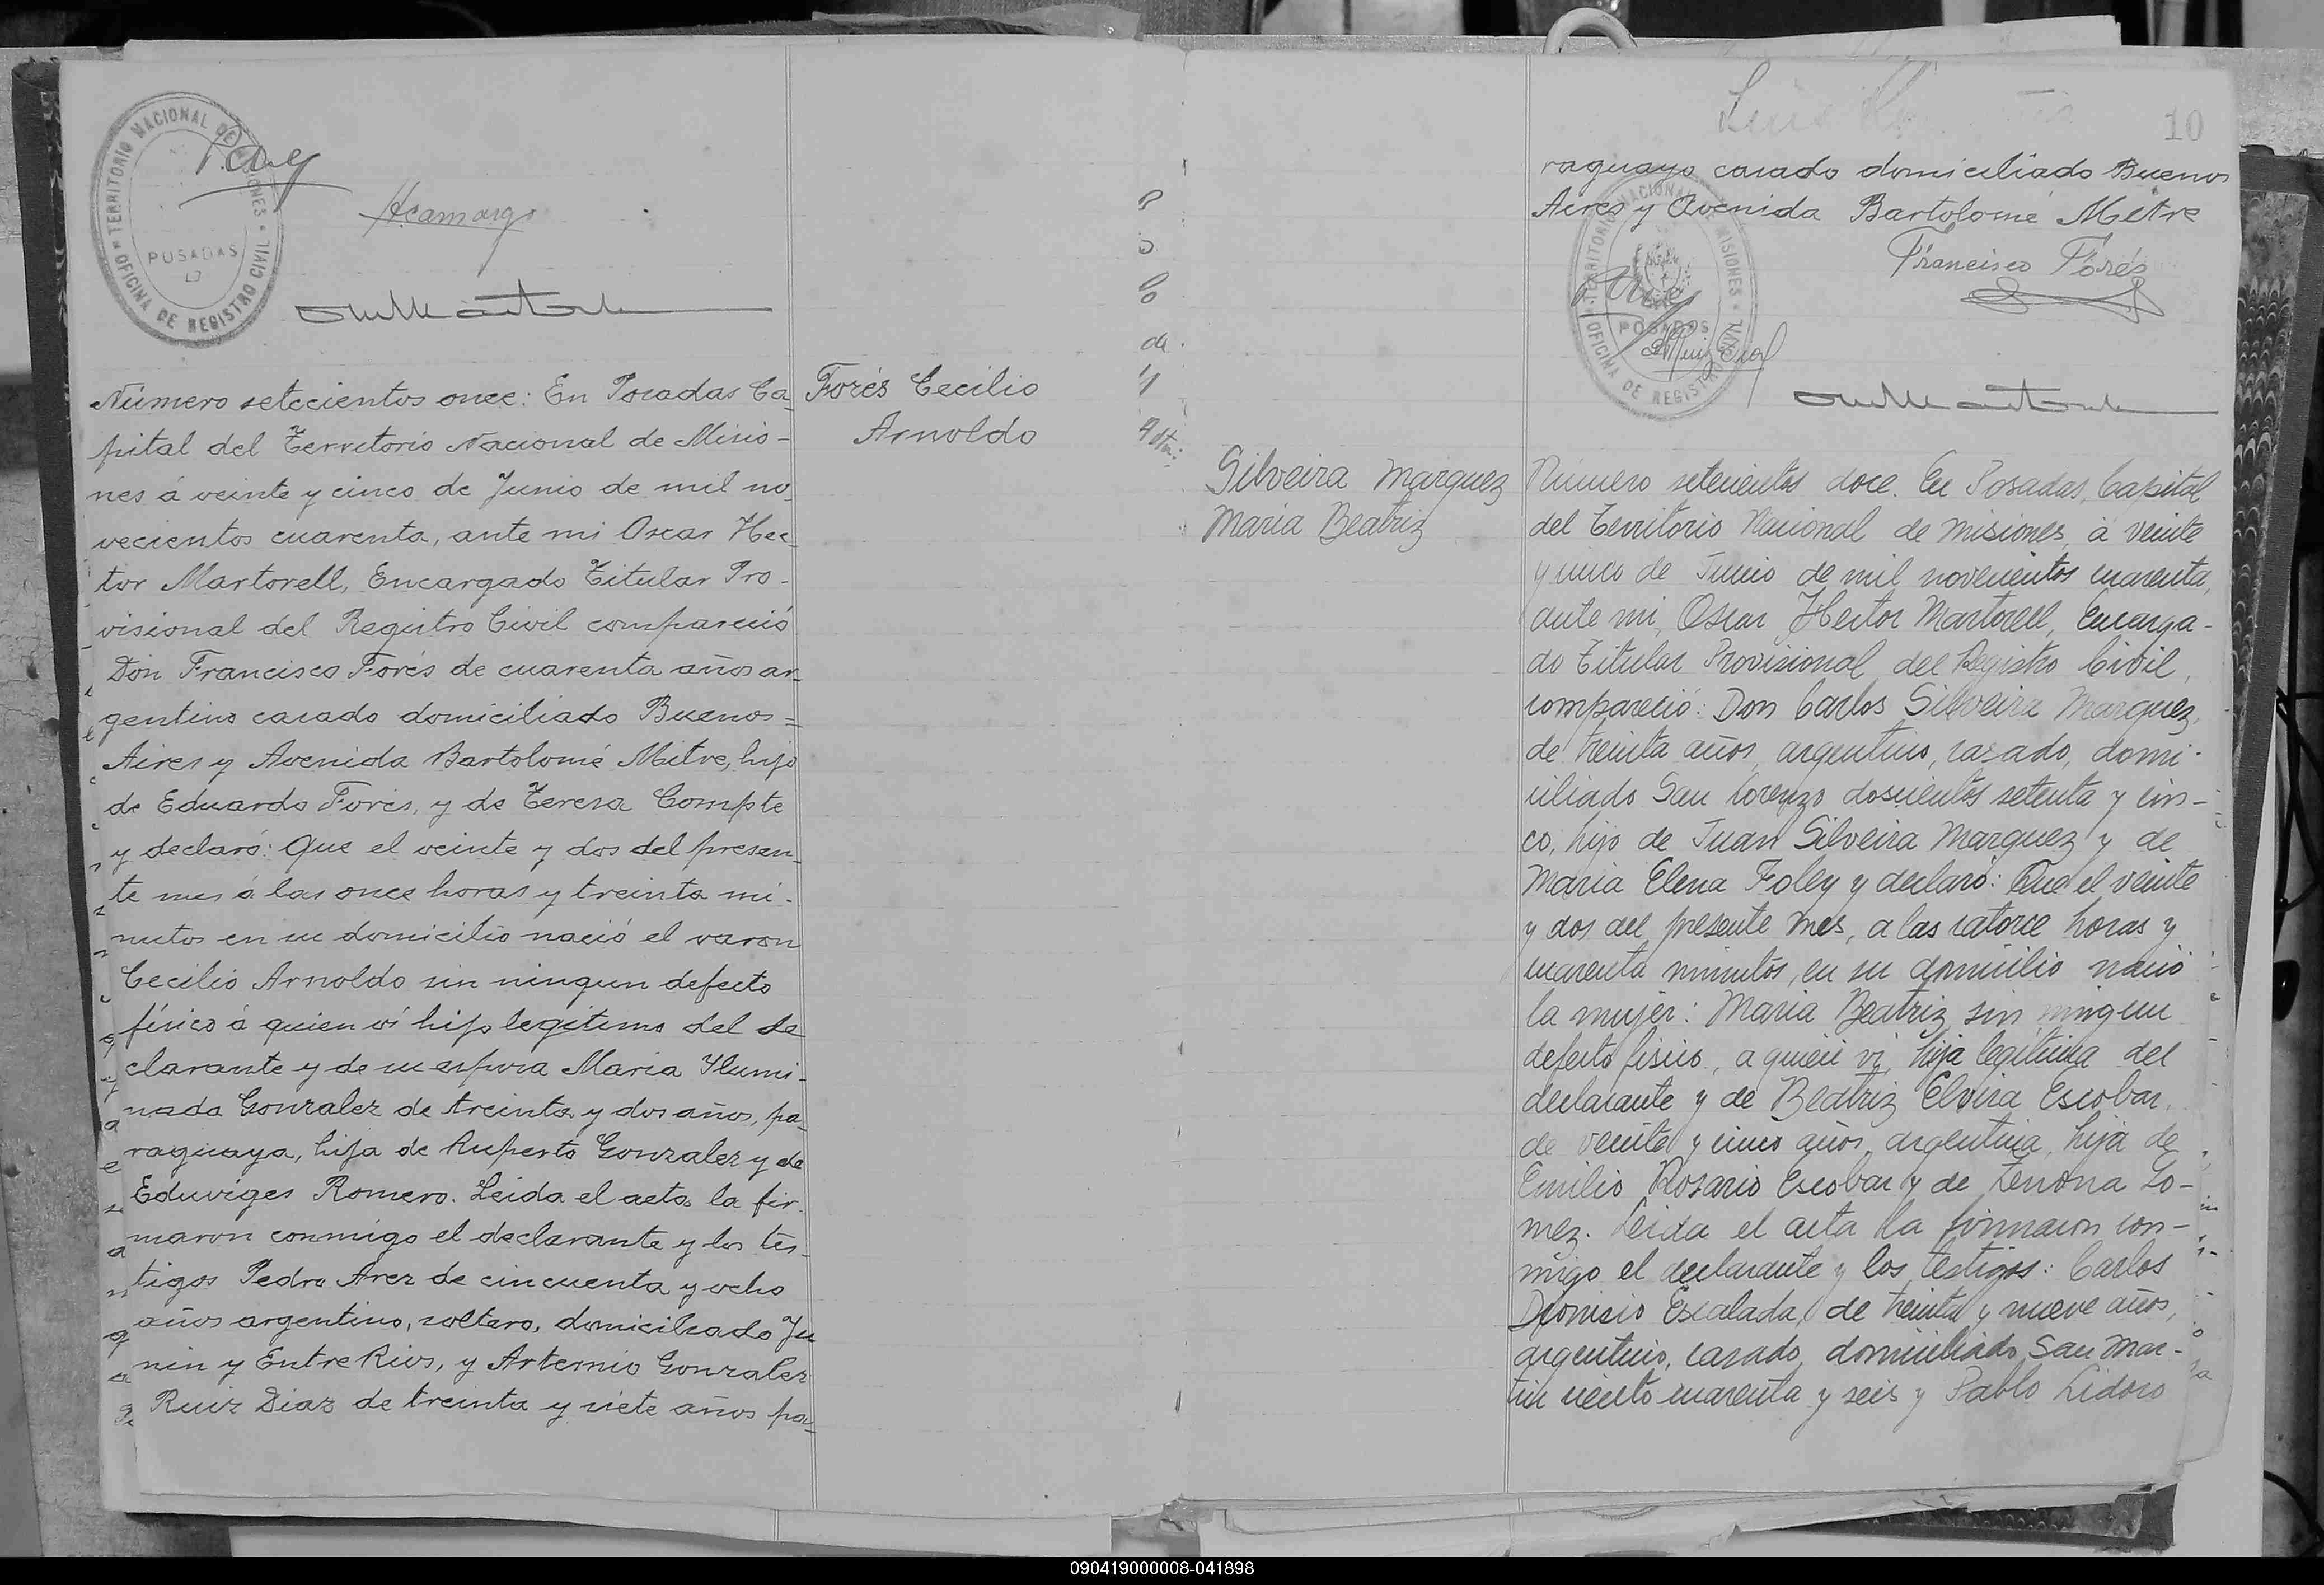 TERRITORIO NACIONAL DE MISIONES
OFICINA DE REGISTRO CIVIL
POSADAS
Hcamargo
Número setecientos once: En Posadas Ca-
pital del Territorio Nacional de Misio-
nes á veinte y cinco de Junio de mil no-
vecientos cuarenta, ante mi Oscar Hec-
tor Martorell, Encargado Titular Pro-
visional del Registro Civil compareció
Don Francisco Forés de cuarenta años ar-
gentino casado domiciliado Buenos=
Aires y Avenida Bartolomé Mitre, hijo
de Eduardo Forés, y de Teresa Compte
y declaró: Que el veinte y dos del presen-
te mes á las once horas y treinta mi-
nutos en su domicilio nació el varon
Cecilio Arnoldo sin ningun defecto
físico á quien ví hijo legítimo del de
clarante y de su esposa Maria Ilumi-
nada Gonzalez de treinta y dos años, pa-
raguaya, hija de Ruperto Gonzalez y de
Eduviges Romero. Leida el acta la fir-
maron conmigo el declarante y los tes-
tigos Pedro Arez de cincuenta y ocho
años argentino, soltero, domiciliado Ju
nin y Entre Rios, y Artemio Gonzalez
Ruiz Diaz de treinta y siete años pa-
Forés Cecilio
Arnoldo
10
raguayo casado domiciliado Buenos
Aires y Avenida Bartolomé Mitre
Francisco Forés
TERRITORIO NACIONAL DE MISIONES
OFICINA DE REGISTRO CIVIL
POSADAS
Silveira Marquez
Maria Beatriz
Número setecientos doce. En Posadas, Capital
del Territorio Nacional de Misiones, á veinte
y cinco de Junio de mil novecientos cuarenta,
ante mi, Oscar Hector Martorell, Encarga-
do Titular Provisional del Registro Civil,
compareció: Don Carlos Silveira Marquez,
de treinta años, argentino, casado, domi-
ciliado San Lorenzo doscientos setenta y cin-
co, hijo de Juan Silveira Marquez y de
Maria Elena Foley y declaró: Que el veinte
y dos del presente mes, a las catorce horas y
cuarenta minutos, en su domicilio nació
la mujer: Maria Beatriz, sin ningun
defecto fisico, a quien vi, hija legitima del
declarante y de Beatriz Elvira Escobar,
de veinte y cinco años, argentina, hija de
Emilio Rosario Escobar y de Zenona Go-
mez. Leida el acta la firmaron con-
migo el declarante y los testigos: Carlos
Dionisio Escalada, de treinta y nueve años,
argentino, casado, domiciliado San Mar-
tin ciento cuarenta y seis y Pablo Lidoro
090419000008-041898